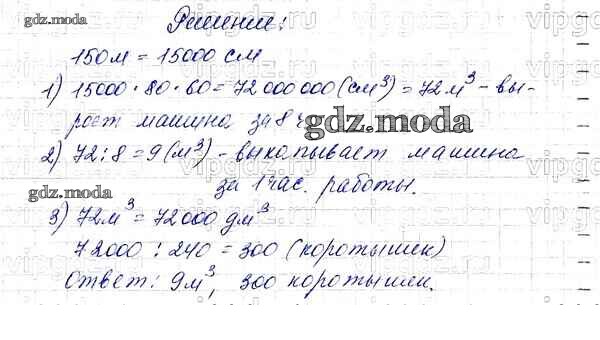 Решение:
gdz.moda
150м = 15000 см
1) 15000 · 80 · 60 = 72 000 000 (см³) = 72 м³ - вы-
роет машина за 8 ч
gdz.moda
2) 72 : 8 = 9 (м³) - выкапывает машина
за 1 час. работы.
gdz.moda
3) 72м³ = 72000 дм³
72000 : 240 = 300 (коротышек)
Ответ: 9м³, 300 коротышек.